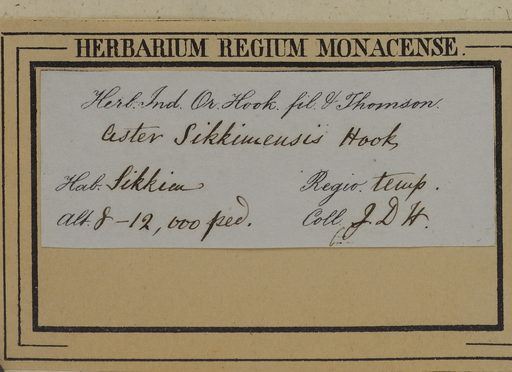 HERBARIUM REGIUM MONACENSE.
Herb. Ind. Or. Hook. fil. & Thomson.
Aster Sikkimensis Hook
Hab. Sikkim Regio. temp.
Alt. 8-12,000 ped. Coll. J. D. H.